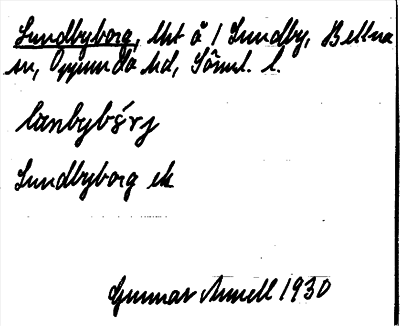 Lundbyborg, lht å 1 Lundby, Bettna
sn, Oppunda hd, Söml. l.
lanbybǫ́rj
Lundbyborg ek
Gunnar Anell 1930